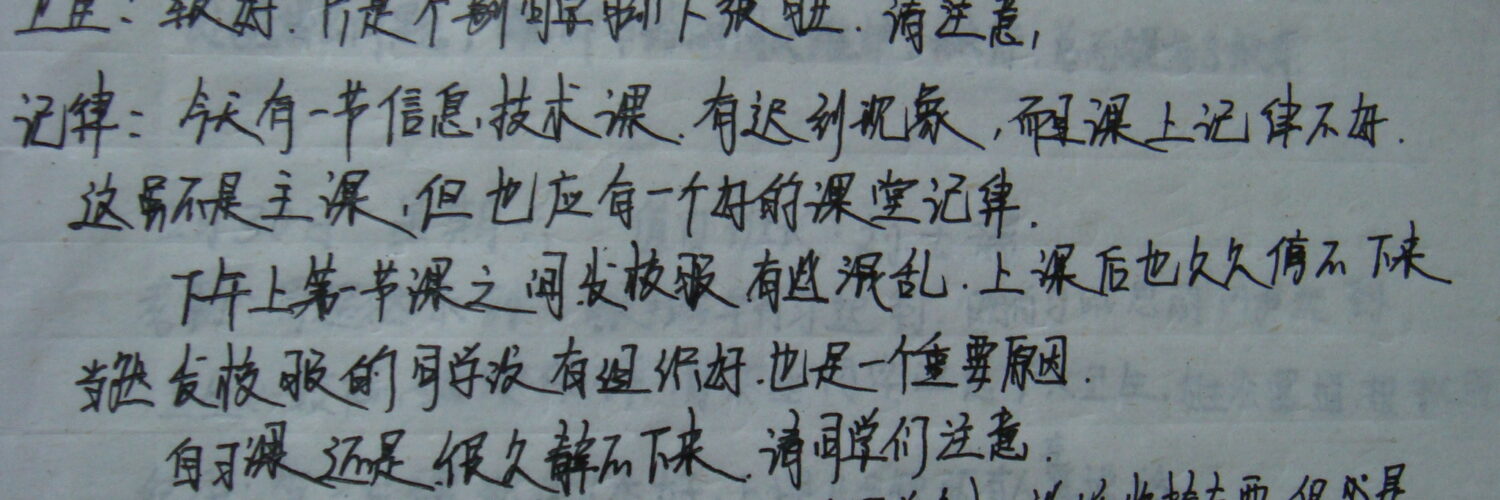 卫生：较好.只是个别同学脚下废纸.请注意,
记律：今天有一节信息技术课.有迟到现象,而且课上记律不好.
这虽不是主课,但也应有一个好的课堂记律.
下午上第一节课之间发校服有些混乱.上课后也久久停不下来
当然发校服的同学没有组织好.也是一个重要原因.
自习课还是很久静不下来.请同学们注意.